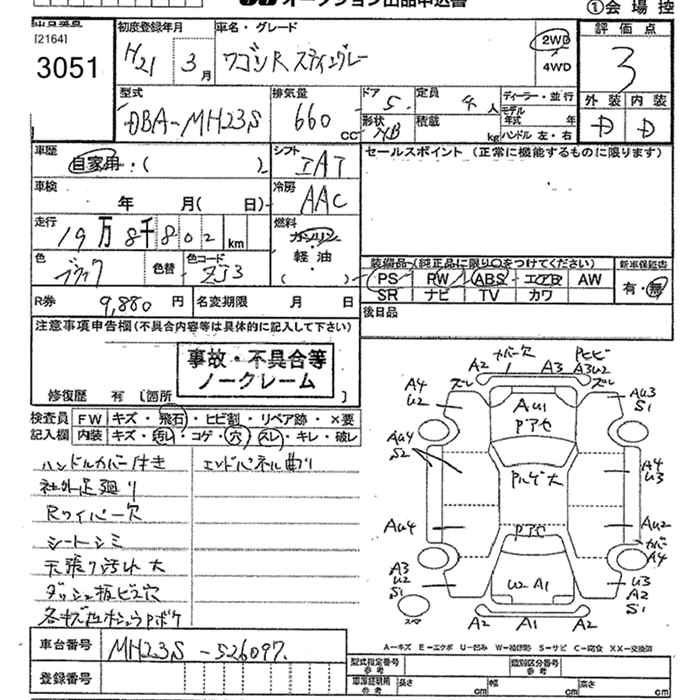 オークション出品申込書
①会場控
[2164]
3051
初度登録年月
H21 3月
車名・グレード
ワゴンR スティングレー
2WD
4WD
評価点
3
外装 内装
D D
型式
DBA-MH23S
排気量
660 CC
ドア 5
形状 HB
定員 4 人
積載 kg
ディーラー・並行
モデル年式 年
ハンドル 左・右
車歴
自家用・( )
シフト
IAT
セールスポイント (正常に機能するものに限ります)
車検
年 月(日)
冷房
AAC
走行
19万8千802 km
燃料
ガソリン
軽油
( )
色
ブラック
色替
色コード
ZJ3
装備品(純正品に限り○をつけてください)
PS RW ABS エアB AW
SR ナビ TV カワ
新車保証書
有・無
R券 9,880 円
名変期限 月 日
後日品
注意事項申告欄(不具合内容等は具体的に記入して下さい)
事故・不具合等
ノークレーム
修復歴 有 [箇所 ]
検査員記入欄
FW キズ・飛石・ヒビ割・リペア跡・×要
内装 キズ・汚レ・コゲ・穴・スレ・キレ・破レ
ハンドルカバー付き
エンドパネル曲り
社外足廻り
Rワイパー欠
シートシミ
天張り汚れ大
ダッシュ板ビス穴
A2 カバー欠 A3 Pヒビ A3U2
A4 U2 ズレ
ズレ AU3 S1
AU1
Pアセ
AU4 S2
Pハゲ大
A4 U3
AU4
Pアセ
AU2
カバーA4
A3 U2 S1
U2 A1
U3 A2 S1
スマ
A2 A1 A2
A-キズ E-エクボ U-凹み W-補修跡 S-サビ C-腐食 XX-交換済
車台番号
MH23S-526097
登録番号
型式指定番号 参考
類別区分番号 参考
車庫証明用 参考
長さ cm
幅 cm
高さ cm